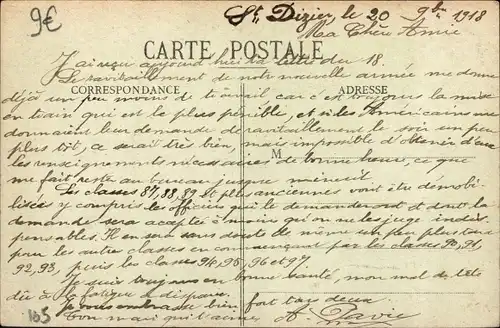 9€
St Dizier, le 20 9bre 1918
Ma Chère Amie
CARTE POSTALE
J'ai reçu aujourd'hui ta lettre du 18.
Le ravitaillement de notre nouvelle armée me donne
CORRESPONDANCE
ADRESSE
déjà un peu moins de travail car c'est toujours la mise
en train qui est le plus pénible, et si les Américains me
donnaient leur demande de ravitaillement le soir un peu
plus tôt, ce serait très bien, mais impossible d'obtenir d'eux
M
les renseignements nécessaires de bonne heure, ce que
me fait rester au bureau jusque minuit
Les classes 87, 88, 89 et plus anciennes vont être démobi-
lisées y compris les officiers qui le demanderont et dont la
demande sera acceptée à moins qu'on ne les juge indis-
pensables. Il en sera sans doute de même un peu plus tard
pour les autres classes en commençant par les classes 90, 91,
92, 93, puis les classes 94, 95, 96 et 97.
Je suis toujours en bonne santé, mon mal de tête
dû à la fatigue a disparu.
Je vous embrasse bien fort tous deux.
Ton mari qui t'aime
A. Pavie
105